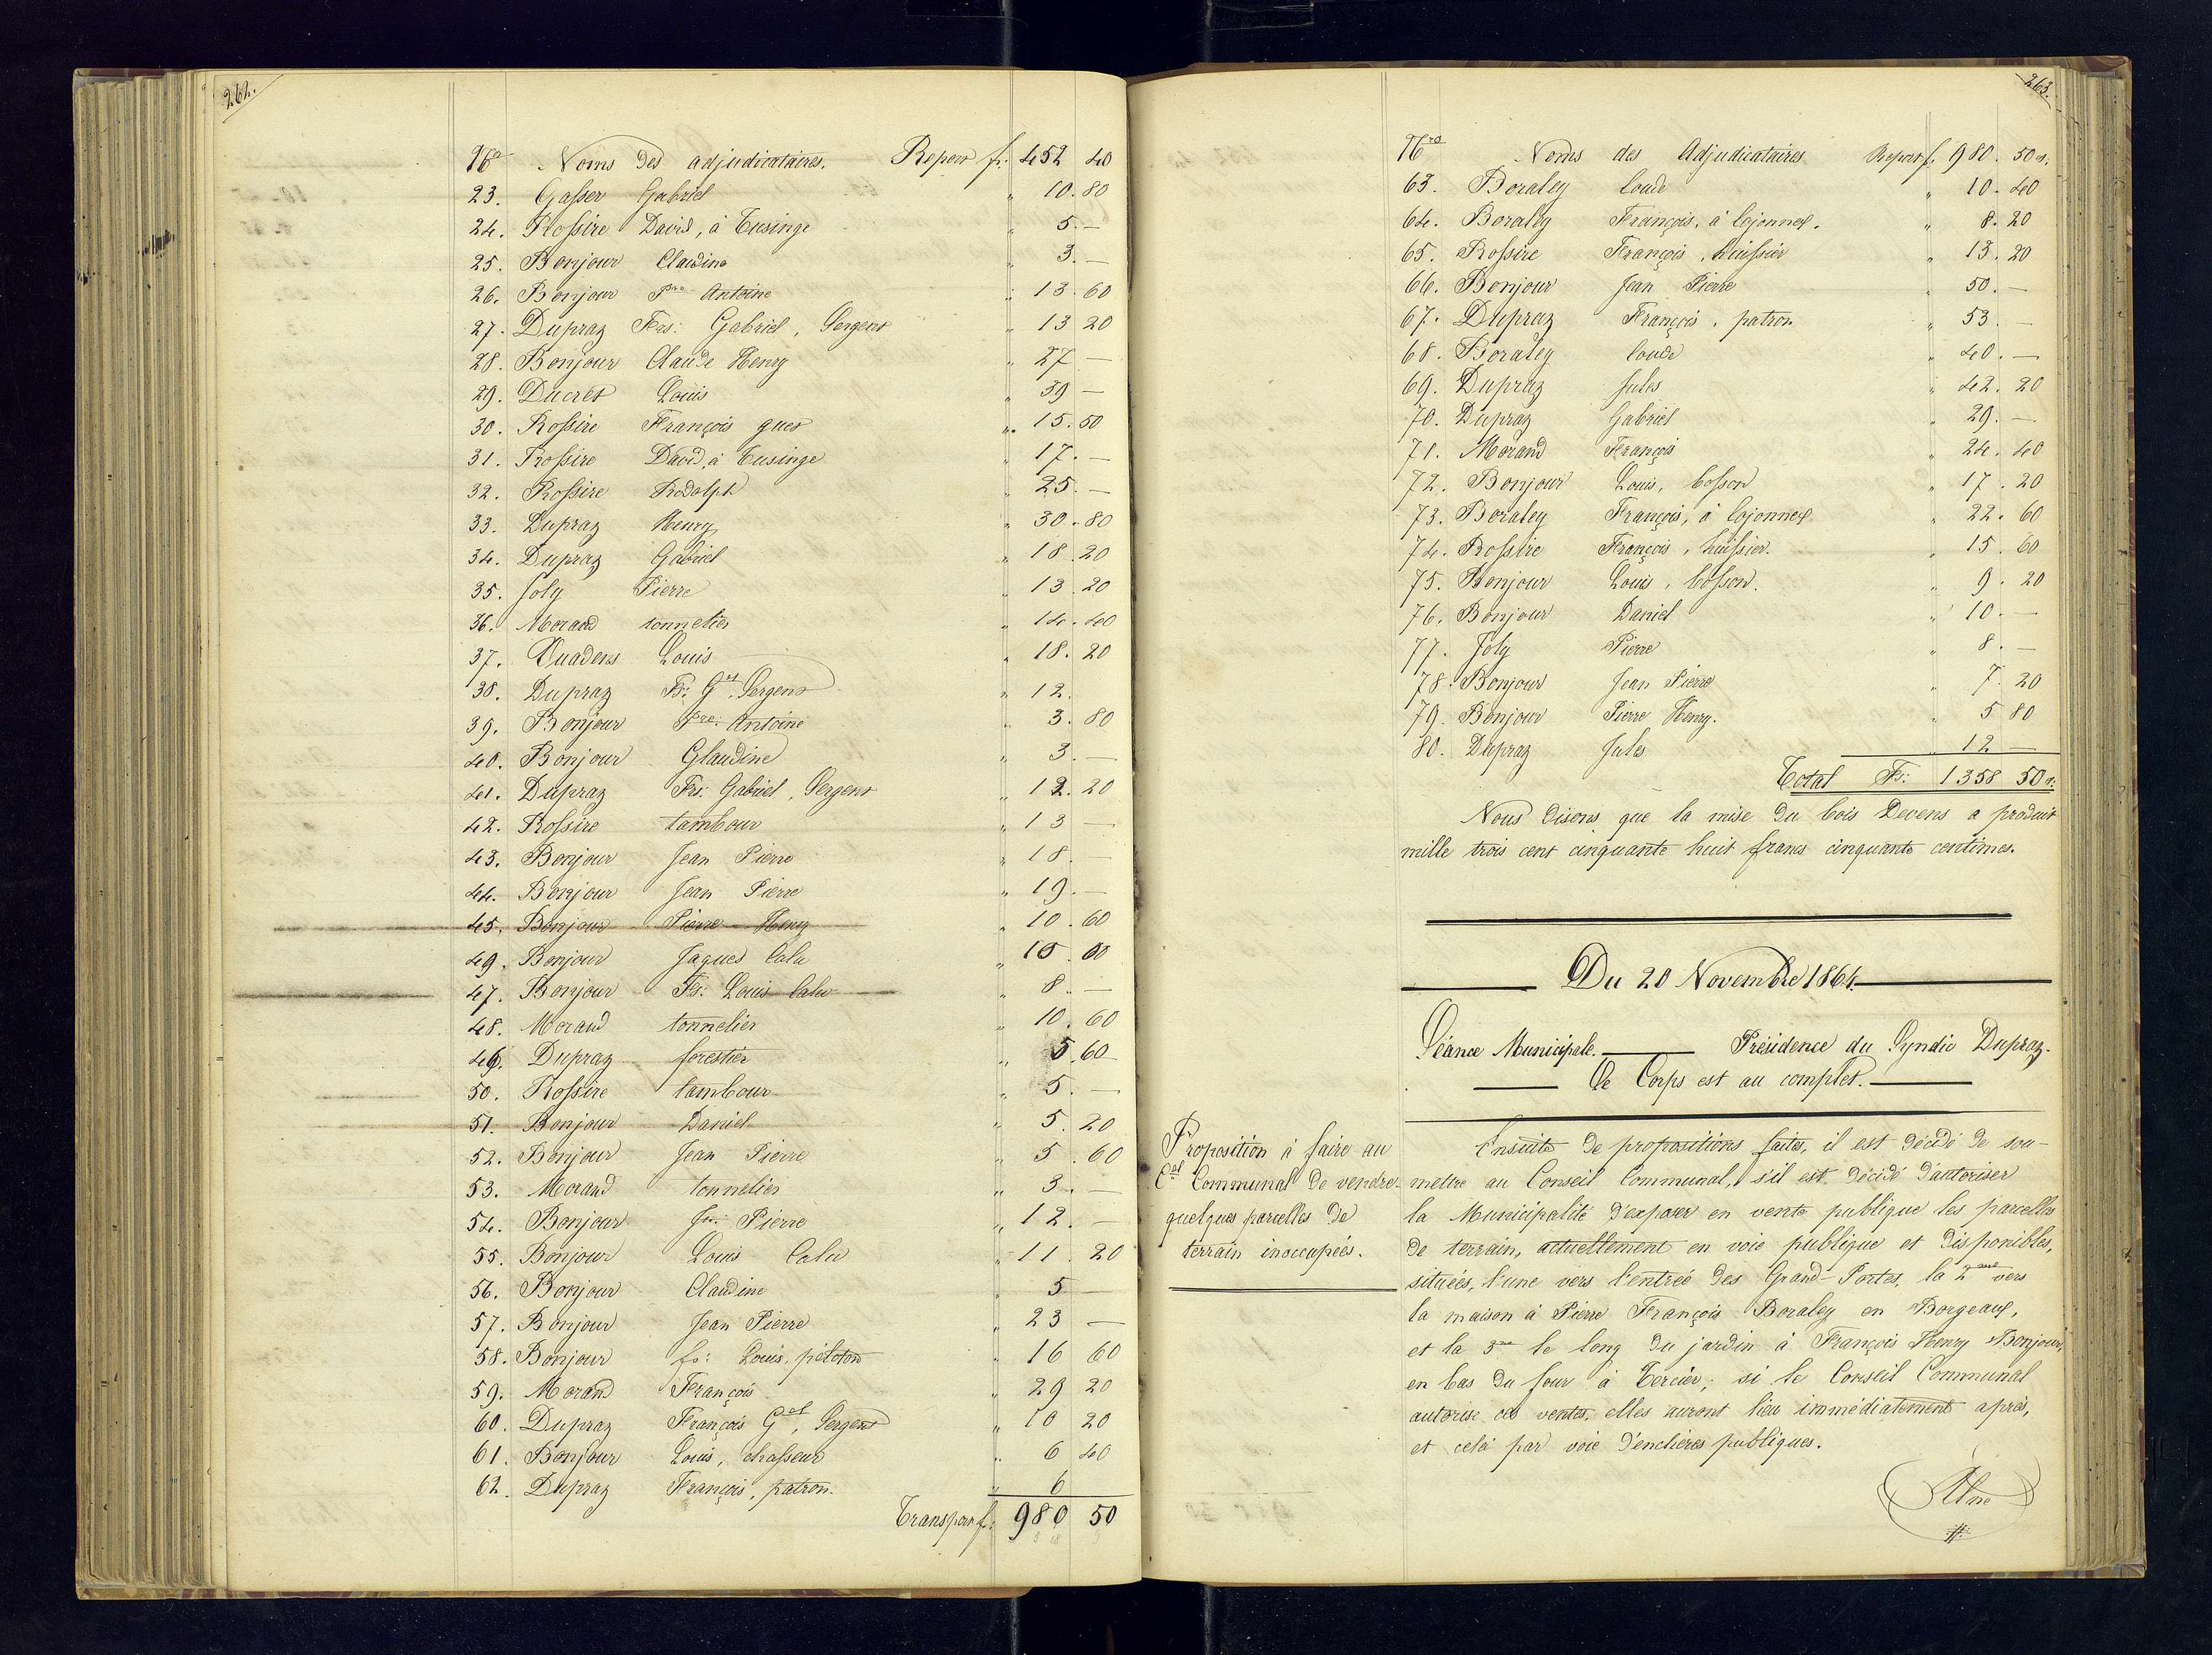 262.
No Noms des adjudicataires. Report fr: 452 40
23. Gasser Gabriel " 10. 80
24. Rossire David, à Eusinge " 5. —
25. Bonjour Claudine " 3. —
26. Bonjour Pre Antoine " 13. 60
27. Dupraz Frs: Gabriel, Sergent " 13 20
28. Bonjour Claude Henry " 27 —
29. Ducret Louis " 39 —
30. Rossire François guet " 15. 50
31. Rossire David, à Eusinge " 17. —
32. Rossire Rodolph " 25. —
33. Dupraz Henry " 30. 80
34. Dupraz Gabriel " 18. 20
35. Joly Pierre " 13. 20
36. Morand tonnelier " 14. 40
37. Quadens Louis " 18. 20
38. Dupraz Fs: Gel, Sergent " 12.
39. Bonjour Pre: Antoine " 3. 80
40. Bonjour Glaudine " 3. —
41. Dupraz Frs: Gabriel, Sergent " 12. 20
42. Rossire tambour " 13 —
43. Bonjour Jean Pierre " 18. —
44. Bonjour Jean Pierre " 19. —
45. Bonjour Pierre Henry " 10. 60
49. Bonjour Jaques Calu " 10. 60
47. Bonjour Fs: Louis Calu " 8. —
48. Morand tonnelier " 10. 60
46. Dupraz forestier " 5. 60
50. Rossire tambour " 5. —
51. Bonjour Daniel " 5. 20
52. Bonjour Jean Pierre " 5. 60
53. Morand tonnelier " 3. —
54. Bonjour Jn: Pierre " 12. —
55. Bonjour Louis Calu " 11. 20
56. Bonjour Claudine " 5 —
57. Bonjour Jean Pierre " 23 —
58. Bonjour fs: Louis, piéton " 16 60
59. Morand François " 29 20
60. Dupraz François Gel, Sergent " 10 20
61. Bonjour Louis, chasseur " 6 40
62. Dupraz François, patron. " 6
Transport f: 980 50
263.
Nro Noms des Adjudicataires Report f. 980. 50 c:
63. Boraley Loude " 10. 40
64. Boraley François, à Cojonnex. " 8. 20
65. Rossire François, huissier " 13. 20
66. Bonjour Jean Pierre " 50. —
67. Dupraz François, patron " 53. —
68. Boraley Loude " 40. —
69. Dupraz Jules " 42. 20
70. Dupraz Gabriel " 29. —
71. Morand François " 24. 40
72. Bonjour Louis, Cosson " 17. 20
73. Boraley François, à Cojonnex " 22. 60
74. Rossire François, huissier. " 15. 60
75. Bonjour Louis, Cosson. " 9. 20
76. Bonjour Daniel " 10. —
77. Joly Pierre " 8. —
78. Bonjour Jean Pierre " 7. 20
79. Bonjour Pierre Henry. " 5 80
80. Dupraz Jules " 12 —
Total Fs: 1358 50 c:
Nous disons que la mise du bois Devens a produit
mille trois cent cinquante huit francs cinquante centimes.
Du 20 Novembre 1864.
Séance Municipale. Présidence du Syndic Dupraz.
Le Corps est au complet.
Proposition à faire au
Cel Communal de vendre
quelques parcelles de
terrain inoccupées.
Ensuite de propositions faites, il est décidé de sou-
mettre au Conseil Communal, s'il est décidé d'autoriser
la Municipalité d'exposer en vente publique les parcelles
de terrain, actuellement en voie publique et disponibles,
situées, l'une vers l'entrée des Grand-Portes, la 2me vers
la maison à Pierre François Boraley en Borgeaux,
et la 3me le long du jardin à François Henry Bonjour,
en bas du four à Tercier; si le Conseil Communal
autorise ces ventes, elles auront lieu immédiatement après,
et cela par voie d'enchères publiques.